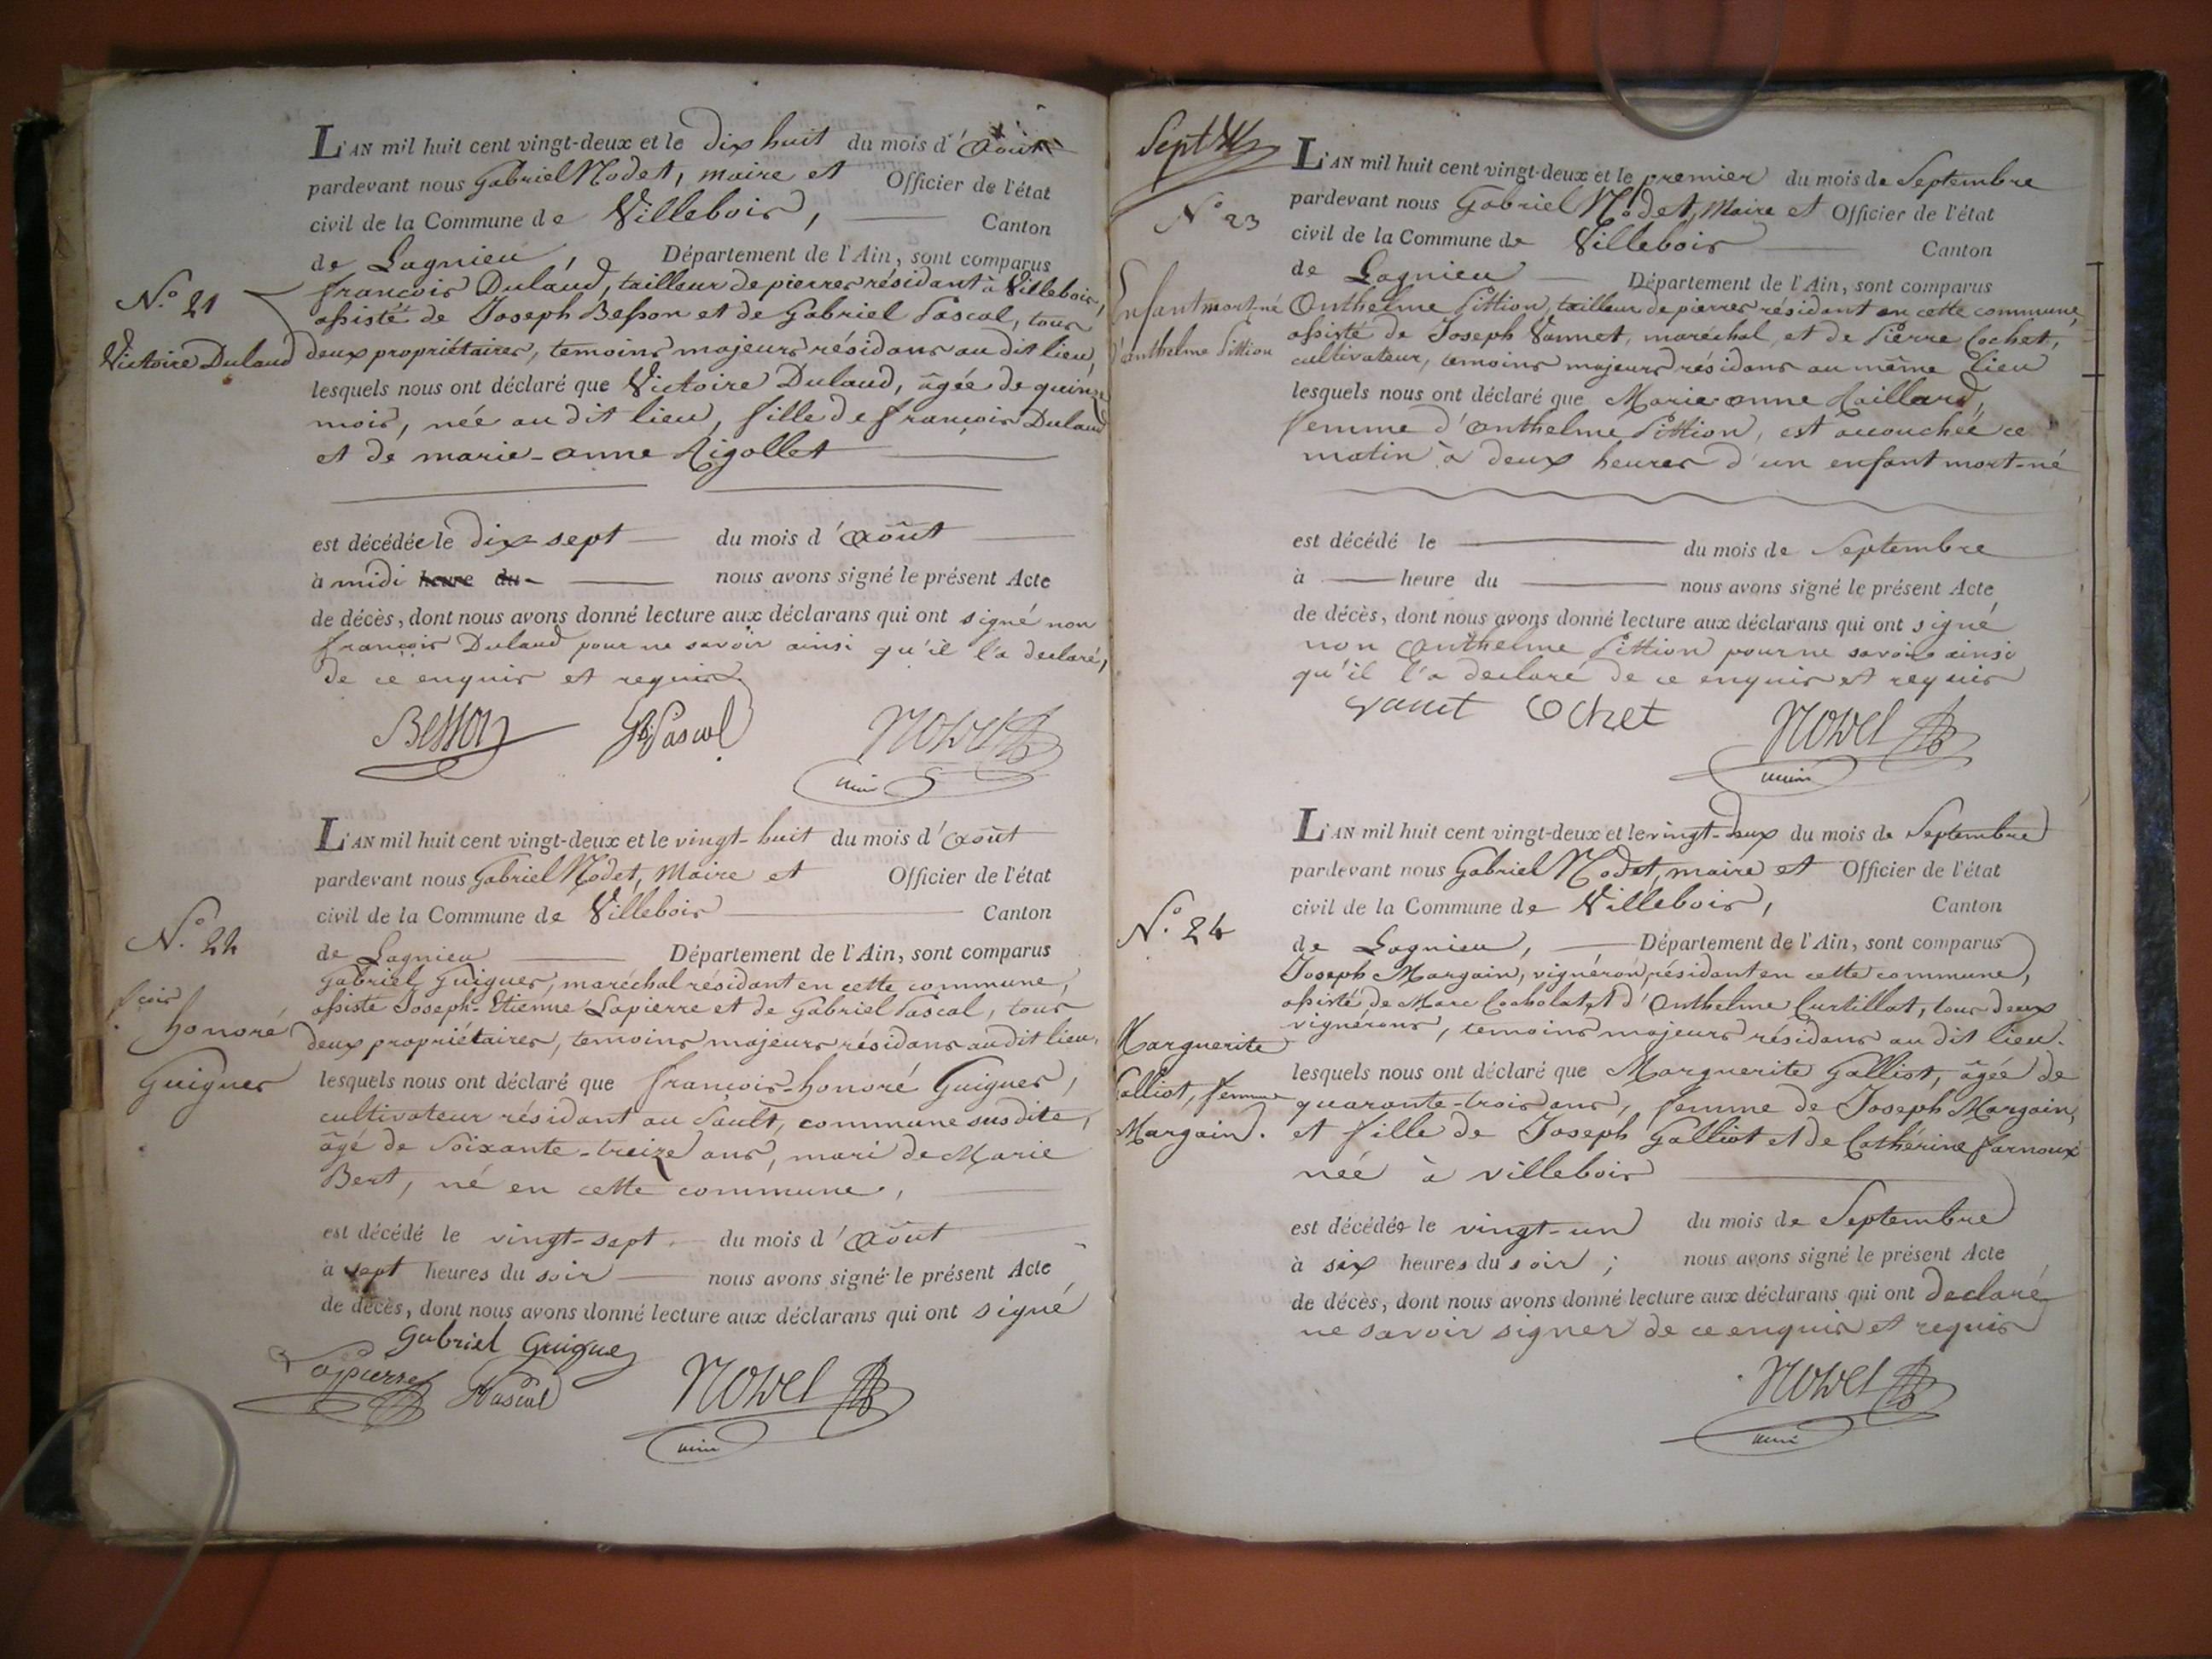 L'AN mil huit cent vingt-deux et le dix huit du mois d'Août
pardevant nous Gabriel Nodet, maire et Officier de l'état
civil de la Commune de Villebois, Canton
de Lagnieu, Département de l'Ain, sont comparus
N.o 21
françois Dulaud, tailleur de pierres résidant à Villebois,
assisté de Joseph Besson et de Gabriel Pascal, tous
Victoire Dulaud
deux propriétaires, temoins majeurs résidans au dit lieu,
lesquels nous ont déclaré que Victoire Dulaud, âgée de quinze
mois, née au dit lieu, fille de françois Dulaud
et de marie-anne Rigollet
est décédée le dix-sept du mois d'Août
à midi heure du nous avons signé le présent Acte
de décès, dont nous avons donné lecture aux déclarans qui ont signé non
françois Dulaud pour ne savoir ainsi qu'il l'a declaré,
de ce enquis et requis
Besson Pascal Nodet
L'AN mil huit cent vingt-deux et le vingt-huit du mois d'Août
pardevant nous Gabriel Nodet, Maire et Officier de l'état
civil de la Commune de Villebois Canton
N.o 22
de Lagnieu Département de l'Ain, sont comparus
Gabriel Guigues, maréchal résidant en cette commune,
fçois
assisté Joseph-Etienne Lapierre et de Gabriel Pascal, tous
honoré
deux propriétaires, temoins majeurs résidans audit lieu,
Guigues
lesquels nous ont déclaré que françois-honoré Guigues,
cultivateur résidant au Sault, commune susdite,
âgé de Soixante-treize ans, mari de Marie
Bert, né en cette commune,
est décédé le vingt-sept du mois d'Août
à sept heures du soir nous avons signé le présent Acte
de décès, dont nous avons donné lecture aux déclarans qui ont signé
Gabriel Guigues
Lapierre Pascal Nodet
Septbre
L'AN mil huit cent vingt-deux et le premier du mois de Septembre
N.o 23
pardevant nous Gabriel Nodet, Maire et Officier de l'état
civil de la Commune de Villebois Canton
de Lagnieu Département de l'Ain, sont comparus
Enfant mort-né
Anthelme Pittion, tailleur de pierres résidant en cette commune,
assisté de Joseph Vannet, maréchal, et de Pierre Cochet,
d'anthelme Pittion
cultivateur, temoins majeurs résidans au même lieu
lesquels nous ont déclaré que Marie-anne Raillard,
femme d'anthelme Pittion, est accouchée ce
matin à deux heures d'un enfant mort-né
est décédé le du mois de Septembre
à heure du nous avons signé le présent Acte
de décès, dont nous avons donné lecture aux déclarans qui ont signé
non Anthelme Pittion pour ne savoir ainsi
qu'il l'a declaré de ce enquis et requis
vanet Cochet Nodet
L'AN mil huit cent vingt-deux et le vingt-deux du mois de Septembre
pardevant nous Gabriel Nodet, maire et Officier de l'état
civil de la Commune de Villebois, Canton
N.o 24
de Lagnieu, Département de l'Ain, sont comparus
Joseph Margain, vigneron, résidant en cette commune,
assisté de Marc Cocholat et d'Anthelme Curtillat, tous deux
vignérons, temoins majeurs résidans au dit lieu.
Marguerite
lesquels nous ont déclaré que Marguerite Galliot, âgée de
Galliot, femme
quarante-trois ans, femme de Joseph Margain,
Margain.
et fille de Joseph Galliot et de Cathérine farnoux
née à villebois
est décédée le vingt-un du mois de Septembre
à six heures du soir; nous avons signé le présent Acte
de décès, dont nous avons donné lecture aux déclarans qui ont declaré
ne savoir signer de ce enquis et requis
Nodet